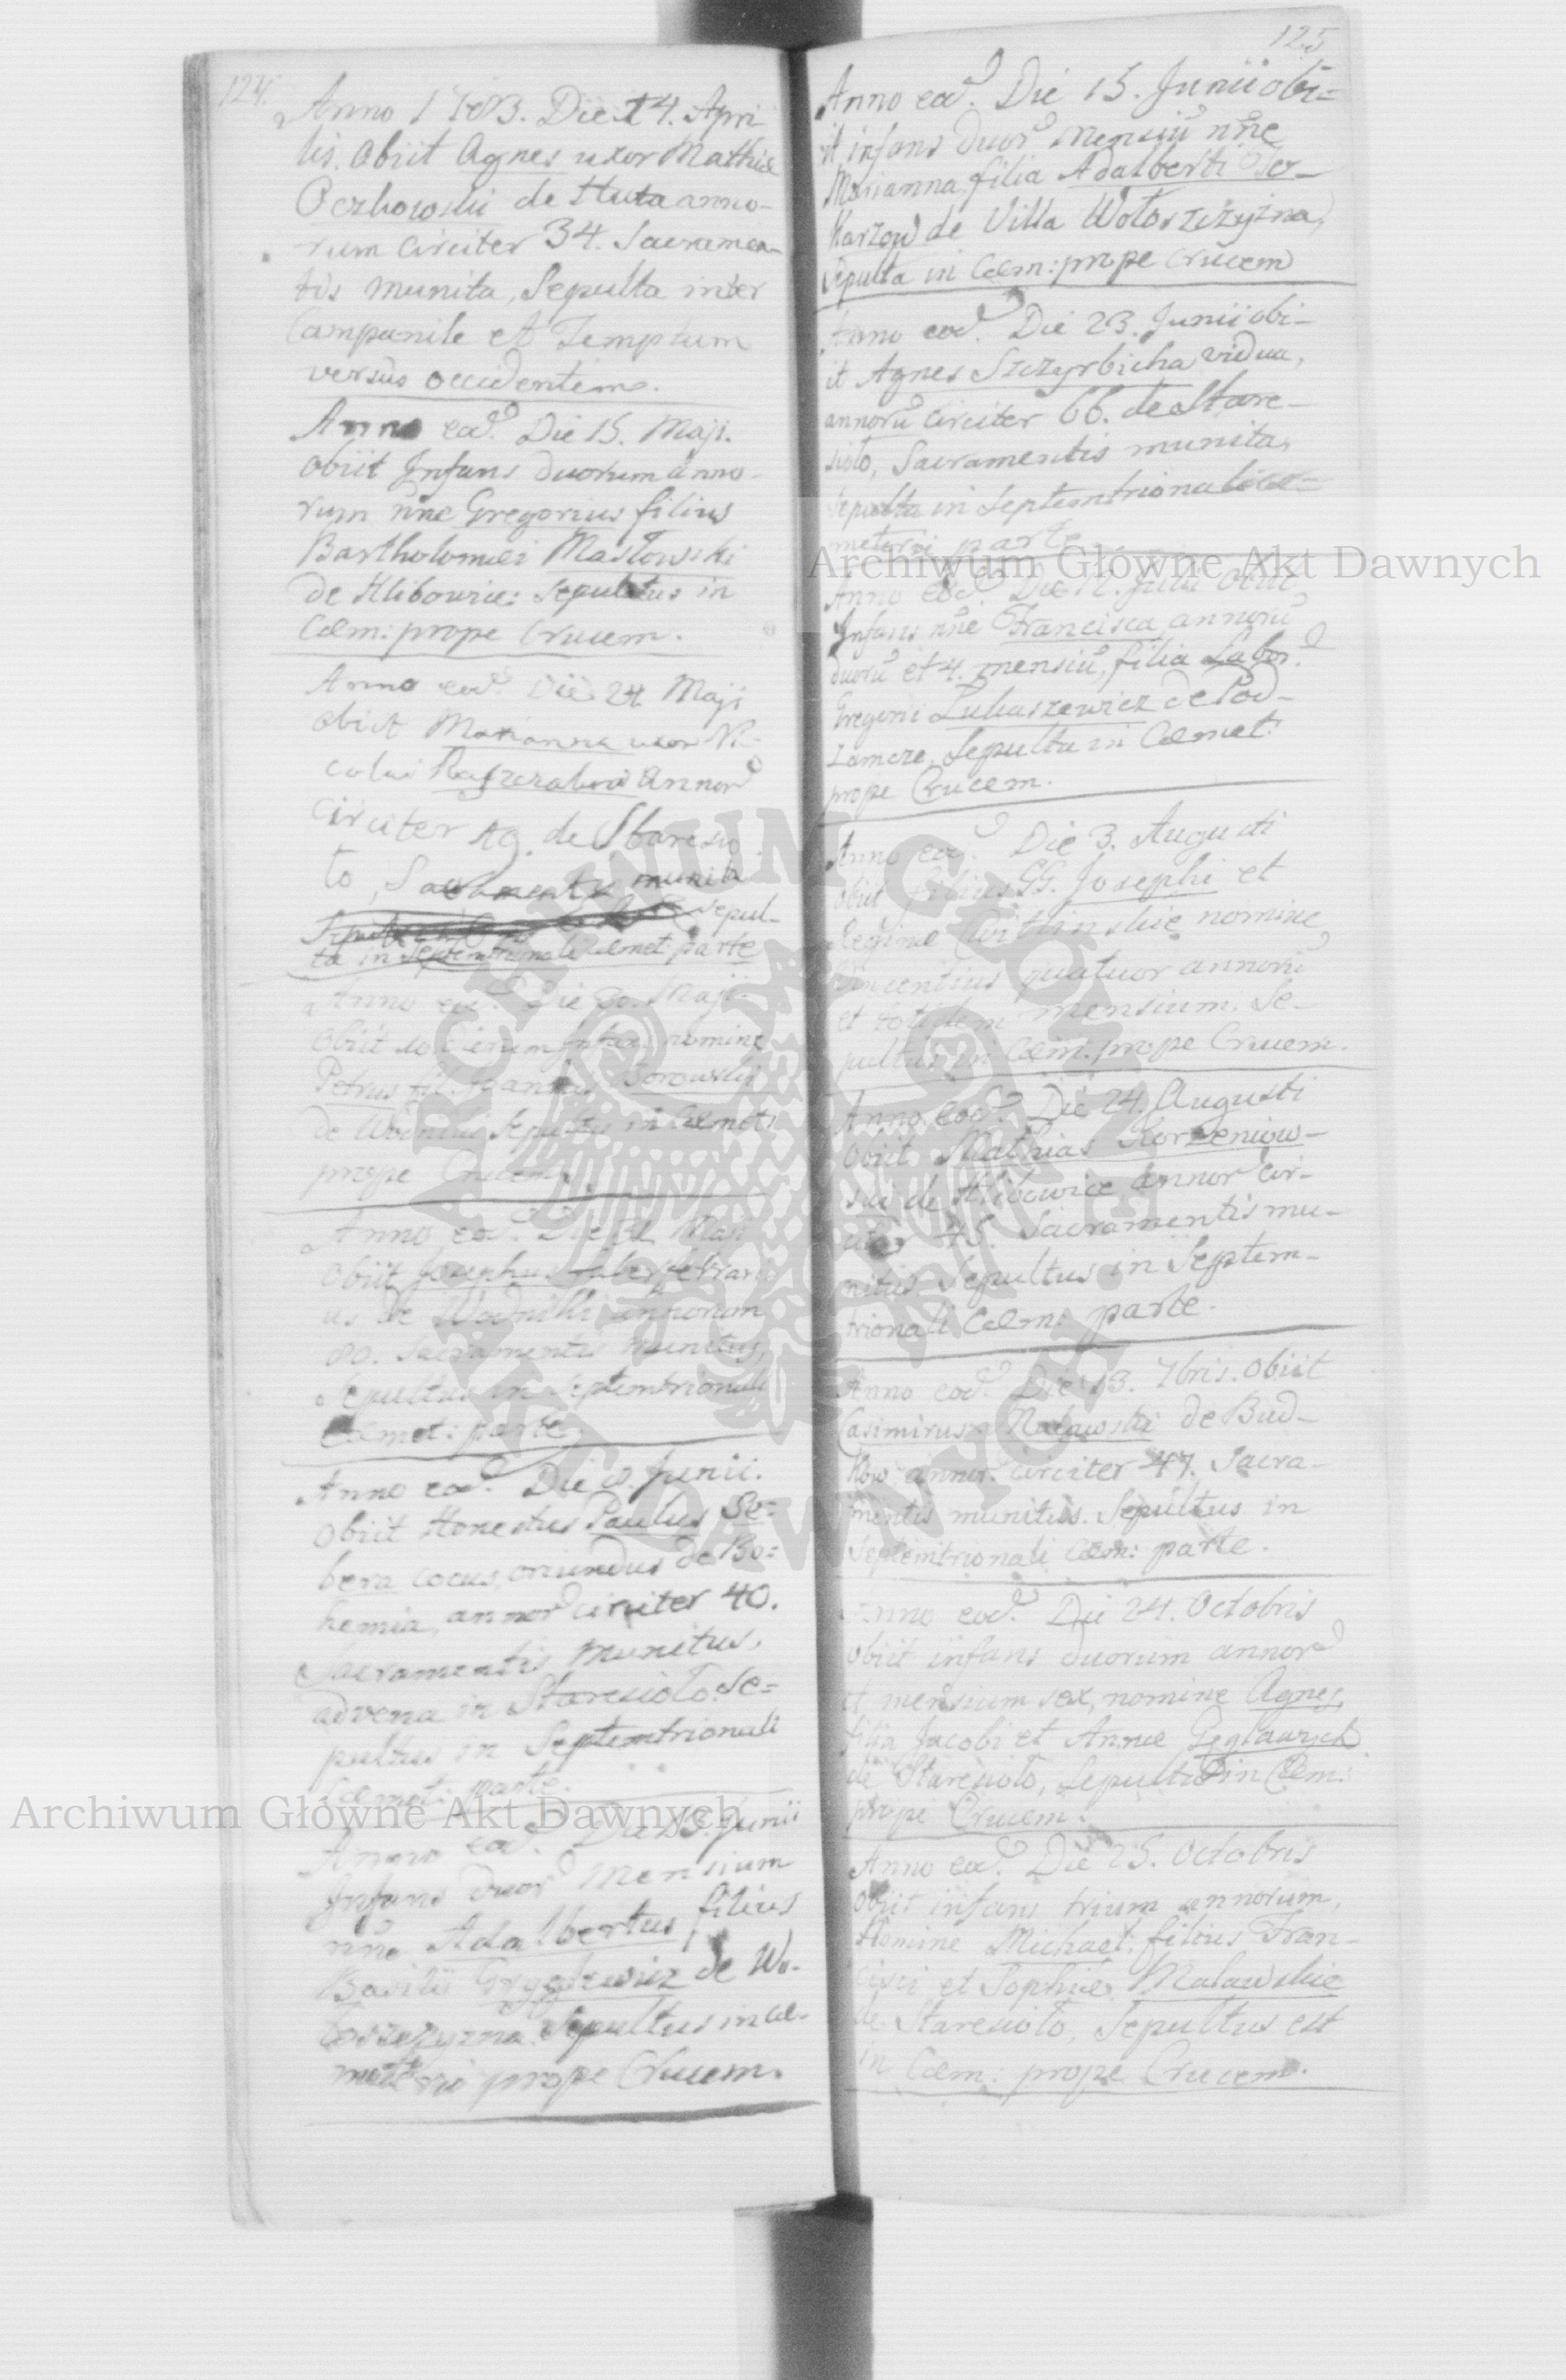 124.
Anno 1783. Die 14. Apri
lis. Obiit Agnes uxor Mathiæ
de Huta anno-
rum circiter 34. Sacramen-
tis munita, Sepulta inter
Campanile et Templum
versus occidentem.
Anno eod. Die 15. Maji.
Obiit Infans duorum anno-
rum nñe Gregorius filius
Bartholomæi Masłowski
de Hlibowice: Sepultus in
Cœm: prope Crucem.
Anno eod. Die 24 Maji
obiit Marianna uxor Ni-
colai Annor
circiter de Staresio
to, Sacramentis munita
Sepul-
ta in Septemtrionali Cœmet: parte
Anno eod. Die 30. Maji.
Obiit Infans nomine
Petrus fil: Borowski
de Sepultus in Cœmet:
prope Crucem.
Anno eod. Die 31. Maji
Obiit Josephus faber ferrari
us de Wodniki annorum
80. Sacramentis munitus,
Sepultus in Septemtrionali
Cœmet: parte
Anno eod. Die Junii.
Obiit Honestus Paulus Se=
bera cocus, oriundus de Bo=
hemia, annor circiter 40.
Sacramentis munitus,
advena in Staresioło. Se=
pultus in Septemtrionali
Cœmet: parte.
Anno eod. Die 13. Junii
Infans duor mensium
nñe Adalbertus filius
Basilii de Wo-
łoszczyzna. Sepultus in Cœ-
meterio prope Crucem.
125
Anno eod. Die 15. Junii obi=
it infans duor mensiũ nñe
Marianna, filia Adalberti
de Villa Wołoszczyzna,
Sepulta in Cœm: prope Crucem
Anno eod. Die 23. Junii obi-
it Agnes Szczyrbicha vidua,
annorũ circiter 66. de Stare-
sioło, Sacramentis munita,
Sepulta in Septemtrionali cœ=
meterii parte.
Anno eod. Die Julii Obiit
Infans nñe Francisca annorũ
duorũ et 4. mensiũ, filia Labor.
Gregorii Łukaszewicz de Pod-
zamcze, Sepulta in Cœmet:
prope Crucem.
Anno eod. Die 3. Augusti
obiit filius GG. Josephi et
nomine
Vincentius quatuor annorũ
et totidem mensium. Se-
pultus in Cœm: prope Crucem.
Anno eod. Die 24. Augusti
Obiit Mathias Korzeniow-
ski de Hlibowice annor cir-
citer 45. Sacramentis mu-
nitus Sepultus in Septem-
trionali Cœm: parte.
Anno eod. Die 13. 7bris. Obiit
Casimirus de Bud-
ków annor circiter 47. Sacra-
mentis munitus. Sepultus in
Septemtrionali Cœm: parte.
Anno eod. Die 24. Octobris
obiit infans duorum annor
et mensium sex, nomine Agnes,
filia Jacobi et Annæ
de Staresioło, Sepulta in Cœm:
prope Crucem.
Anno eod. Die 25. Octobris
Obiit infans trium annorum,
Nomine Michael, filius Fran-
cisci et Sophiæ Malawskie
de Staresioło, Sepultus est
in Cœm: prope Crucem.
Archiwum Główne Akt Dawnych
Archiwum Główne Akt Dawnych
ARCHIWUM GŁÓWNE AKT DAWNYCH